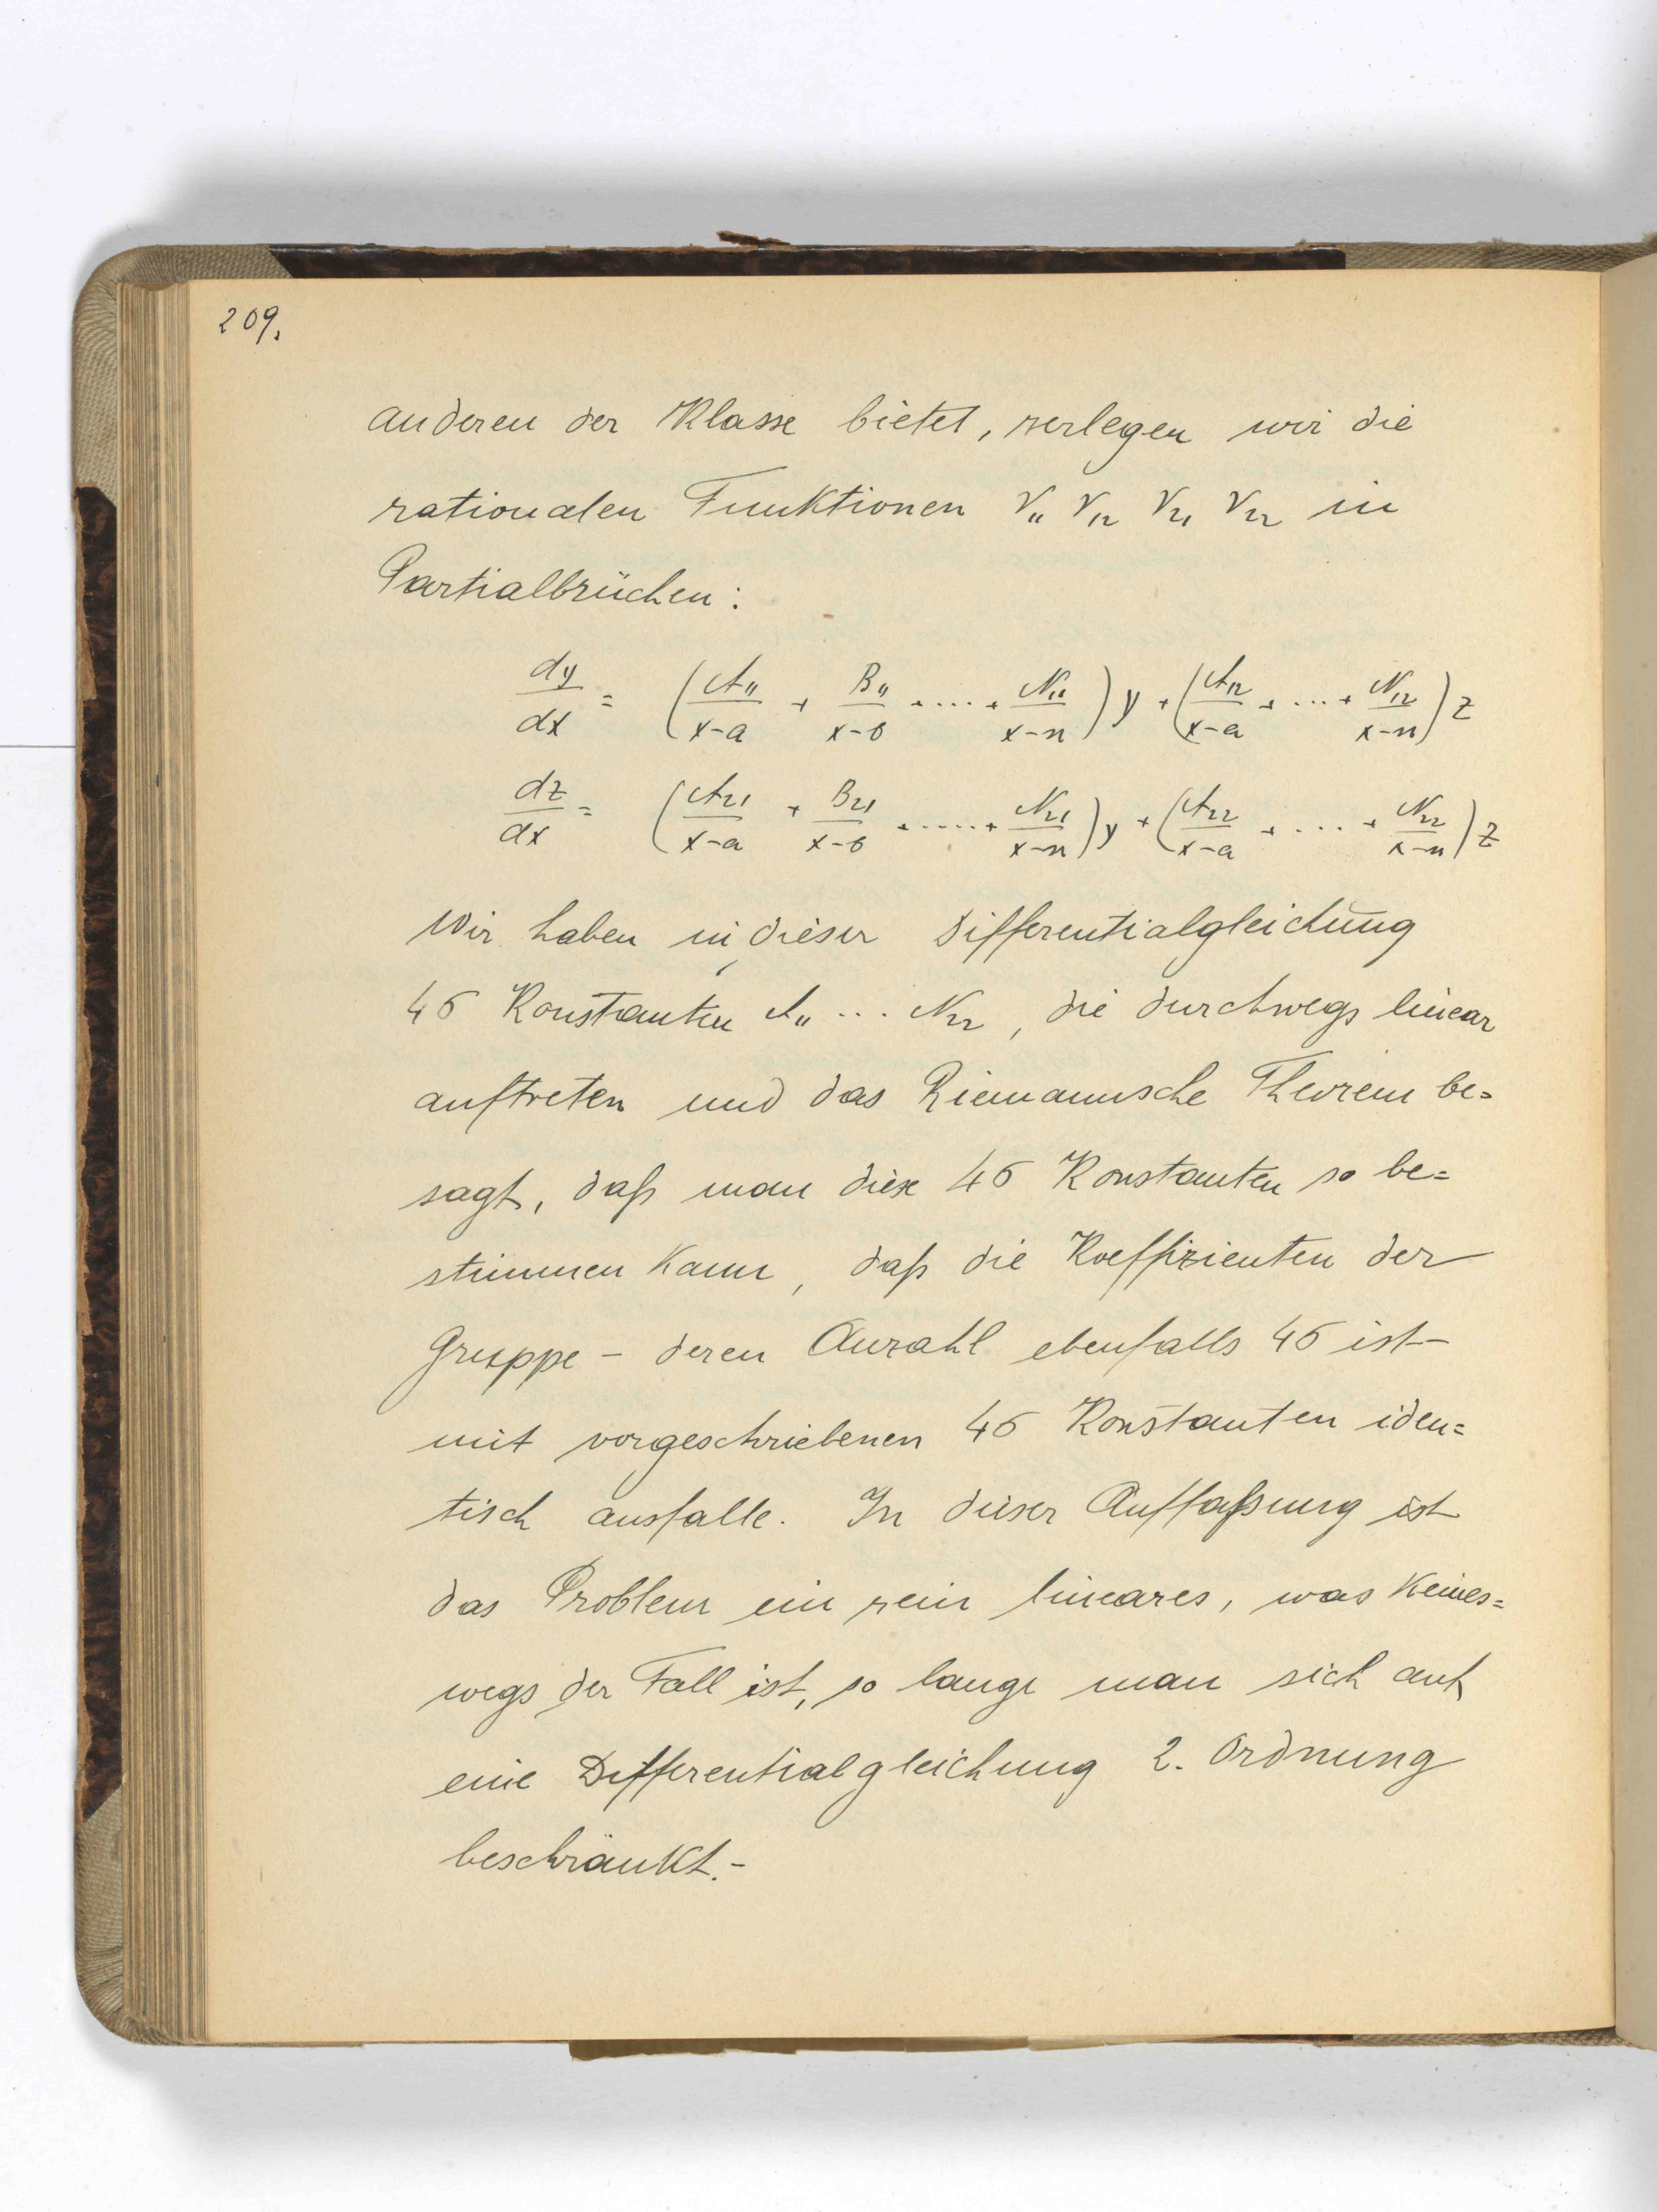 209.
anderen der Klasse bietet, zerlegen wir die
rationalen Funktionen r₁₁ r₁₂ r₂₁ r₂₂ in
Partialbrüchen:
dy/dx = (A₁₁/(x-a) + B₁₁/(x-b) + .... + N₁₁/(x-n)) y + (A₁₂/(x-a) + ... + N₁₂/(x-n)) z
dz/dx = (A₂₁/(x-a) + B₂₁/(x-b) + ..... + N₂₁/(x-n)) y + (A₂₂/(x-a) + .... + N₂₂/(x-n)) z
Wir haben in dieser Differentialgleichung
4σ Konstanten A₁₁ ... N₂₂, die durchwegs linear
auftreten und das Riemannsche Theorem be=
sagt, daß man diese 4σ Konstanten so be=
stimmen kann, daß die Koeffizienten der
Gruppe - deren Anzahl ebenfalls 4σ ist -
mit vorgeschriebenen 4σ Konstanten iden=
tisch ausfalle. In dieser Auffaßung ist
das Problem ein rein lineares, was keines=
wegs der Fall ist, so lange man sich auf
eine Differentialgleichung 2. Ordnung
beschränkt.-